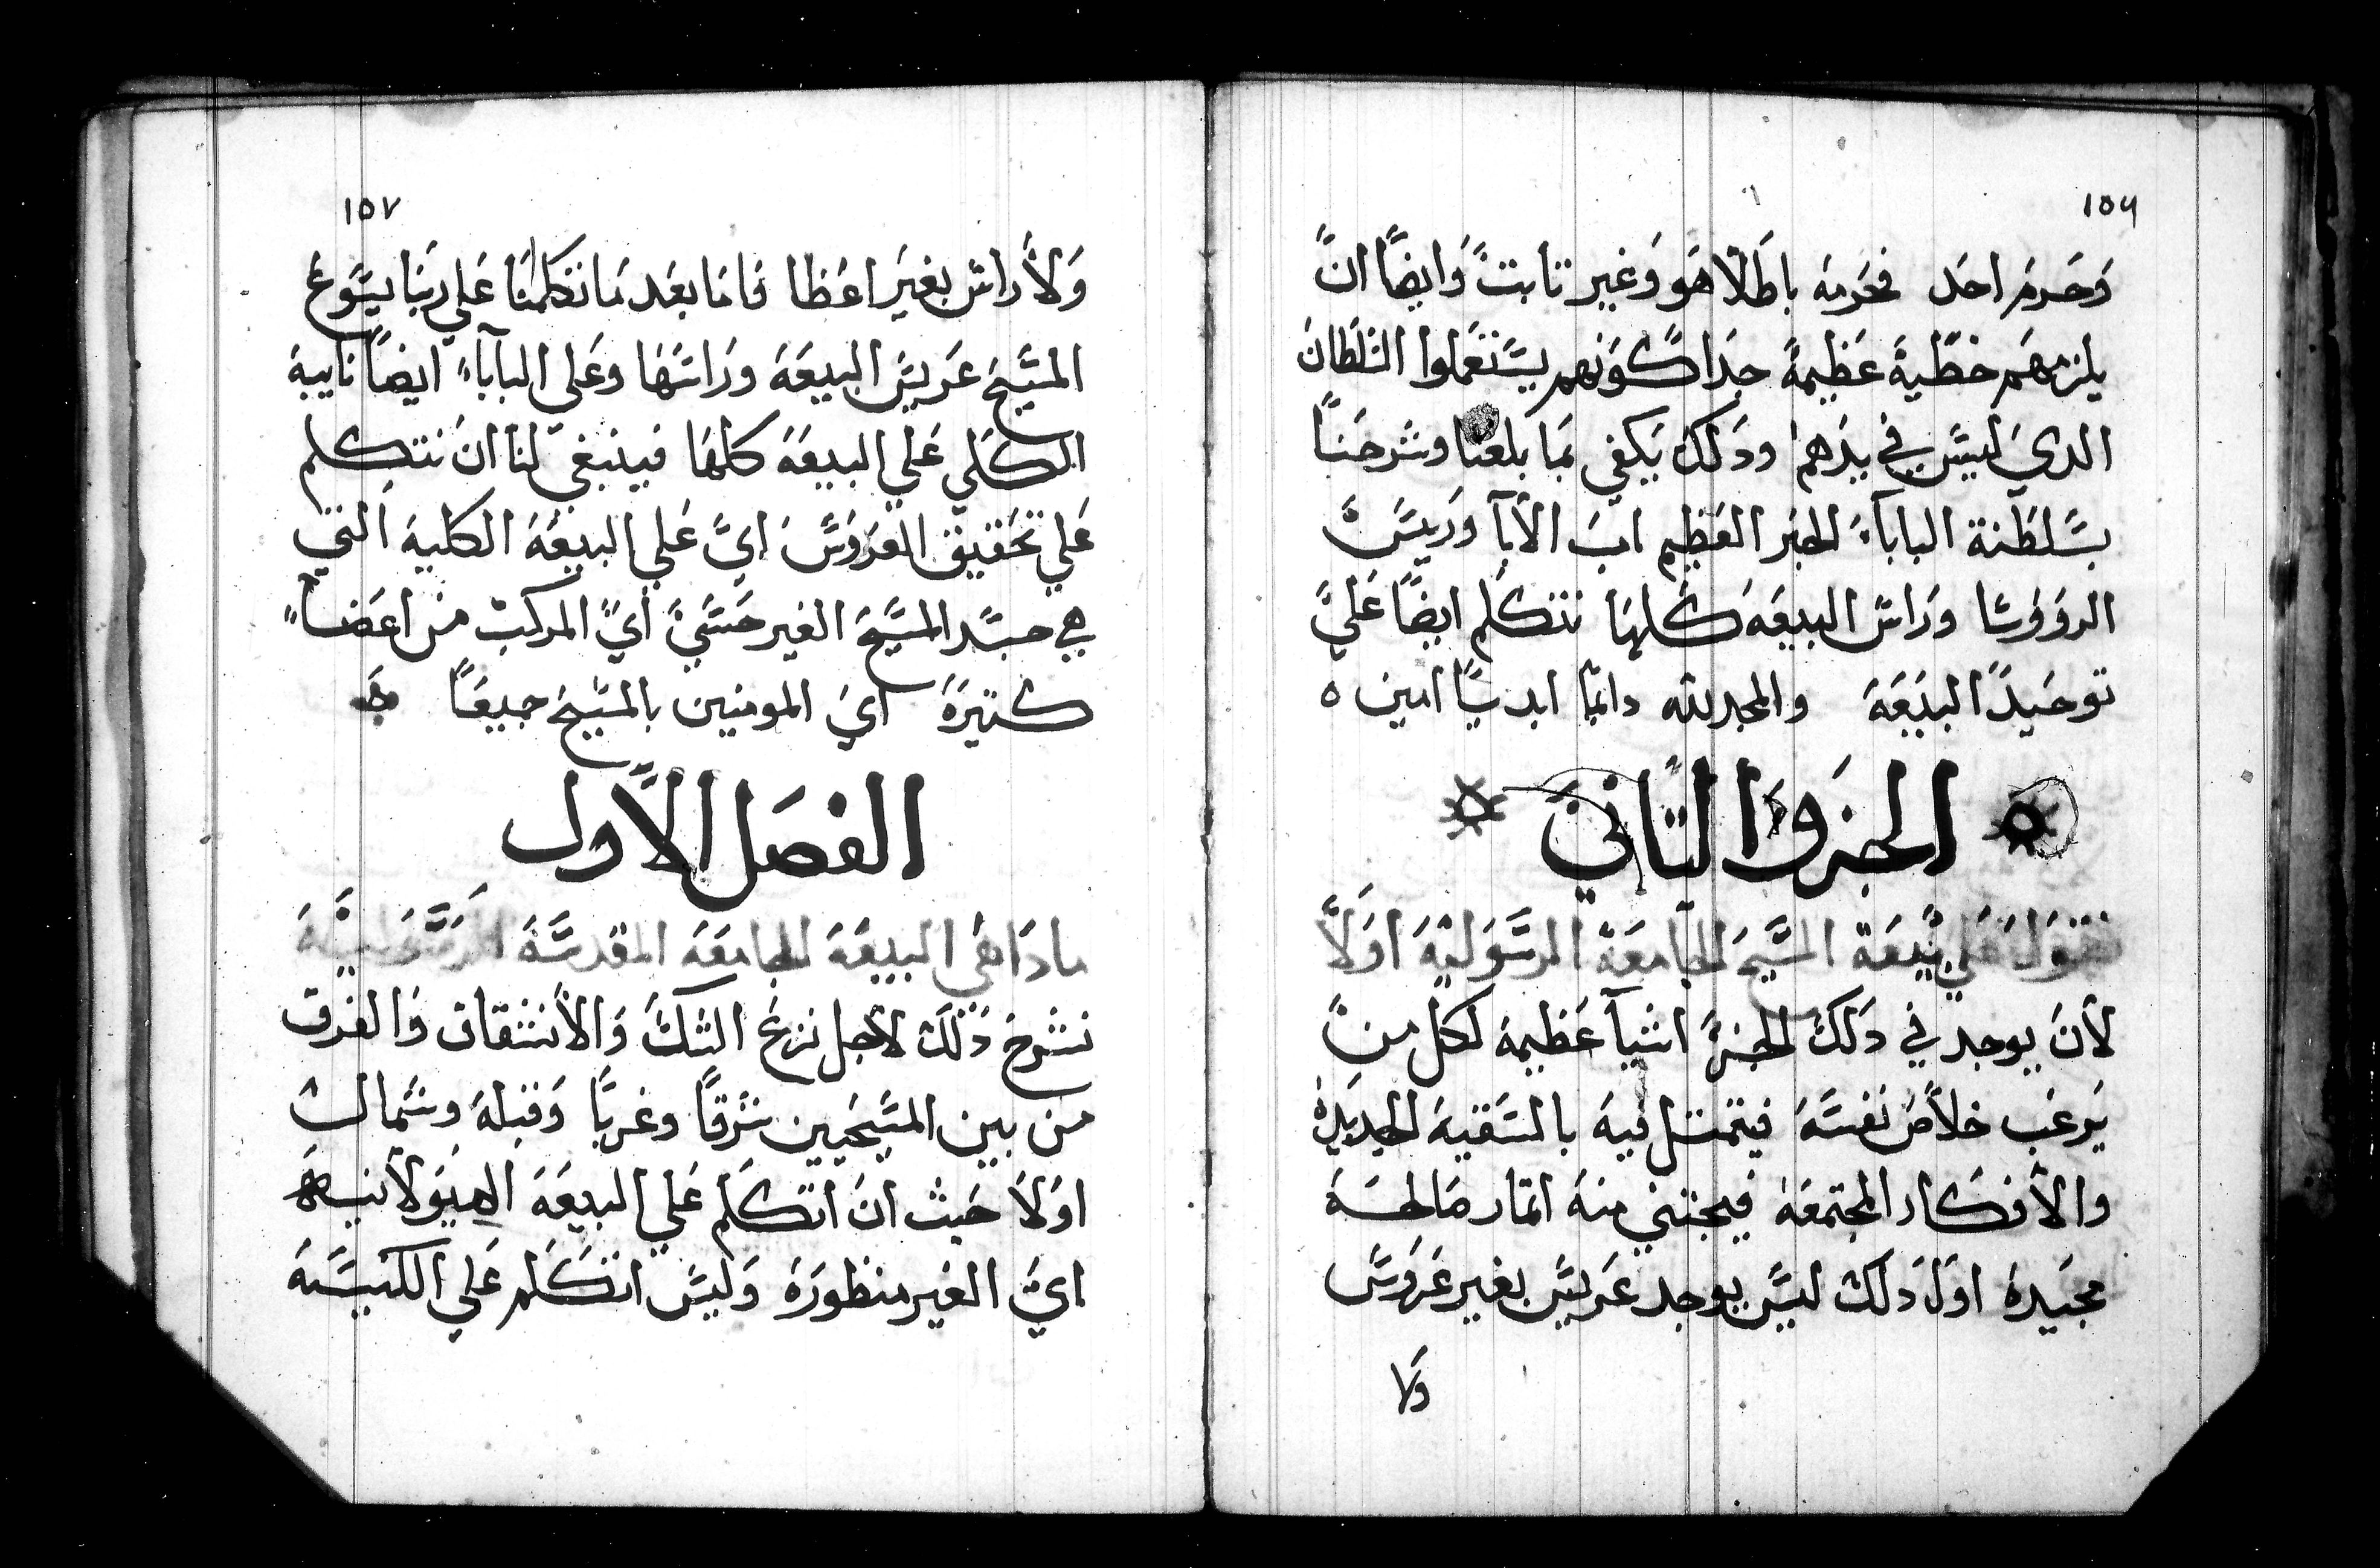 ١٥٦
وَحَرمَ احَد فحَرمَه باطَلًا هَو وَغير تابتً وَايضًا انً
يلزمهَم خطَية عَظيمةً جدَاً كَونهم يسَتعَملوا السَلَطانَ
الدي لَيسَ في يدَهم ودَلك يَكفي بمَا بلغنا وشَرحَناً
بسَلطَنة الباباَء الحَبَر العَظيم ابَ الاَبا وَرييسَ
الروَوسَا وَراسَ البيعَه كَلهَا نتكَلم ايضًا عَلي
توحَيدَ البيَعَة والمجد لله دايمًا ابديًا امين ٥
الجزَو التاني
نقَول عَلي بيعَة المسَيحَ الجامعَة الرسَوليَة اوَلاً
لاَنَ يوجد في دَلكَ الجزَ اشياَ عَظيمة لكل منً
يَرغَب خلاَصَ نفسَهَ فيتمتل فيهَ بالسَقيةَ الجديَدة
والاَفكَار المجتمعَة فيجتني منهَ اتمَار صَالحَة
مجَيدةَ اوَل دَلك ليسَ يوجد عَريسَ بغير عَروسَ
وَلا
١٥٧
وَلاَ راسَ بغيَر اعَظا فَامَا بعَد مَا تكلمَنا عَلي ربَنا يسَوع
المسَيحَ عَريسَ البيعَةَ ورَاسَهَا وعَلي الباباَء ايضاً نايبهَ
الكَلي عَلي البيعَةَ كلهَا فينبغي لنَا انَ نتكلم
عَلي تحَقيق العَروَسَ ايَ عَلي البيعَةَ الكليةَ التي
هي جسَد المسَيحَ الغير حَسَي ايً المركب منَ اعَضاً
كَتيَرَةَ ايَ المومنين بالمسَيحَ جميعَاً
الفصَل الاَول
مادَا هَي البيعَةَ الجامعَةَ المقدسَةَ
نشَرح دَلَك لاَجل نزعَ الشَكَ وَالاَنشَقاق وَالفَرق
منَ بين المسَيحَيين شَرقاً وغربًا وَقبلةَ وشَمالَ
اوَلاَ حَيث انَ اتكَلَم عَلي البيعَةَ الهيَولاَنيه
ايَ الغَير منظورَةَ وَليسَ اتكَلم عَلي الكنيسَة